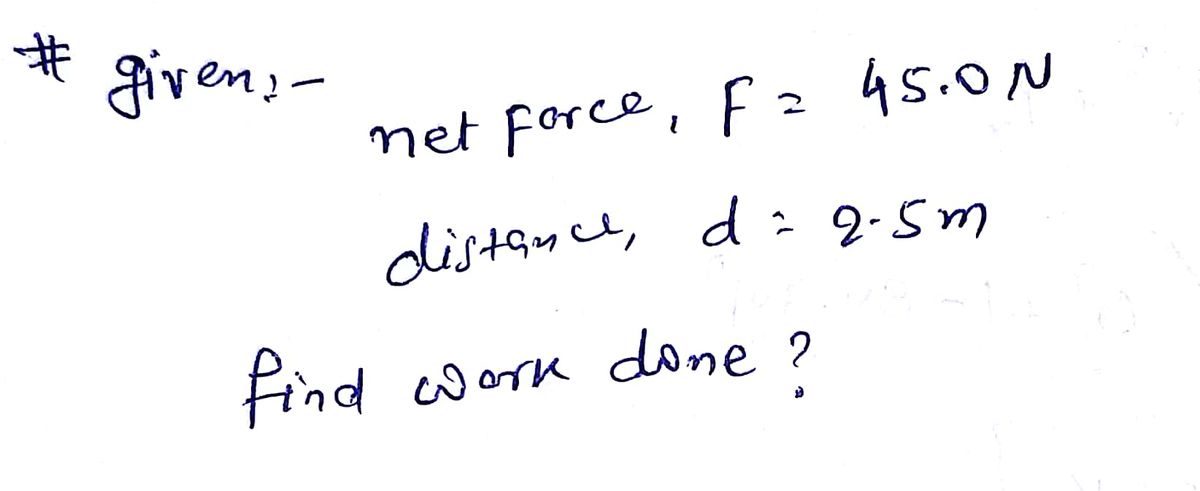 # given:-
net force, F = 45.0 N
distance, d = 2.5m
find work done ?